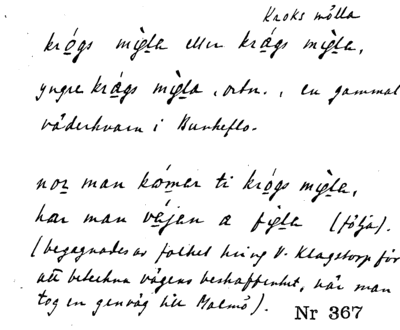 Kroks mölla
krógs mìgla eller krágs mìgla,
yngre krágs mìgla, ortn., en gammal
väderkvarn i Bunkeflo.
nor man kómer ti krógs mìgla,
har man véjen a fígla (följa).
(begagnades av folket kring V. Klagstorp för
att beteckna vägens beskaffenhet, när man
tog en genväg till Malmö).
Nr 367